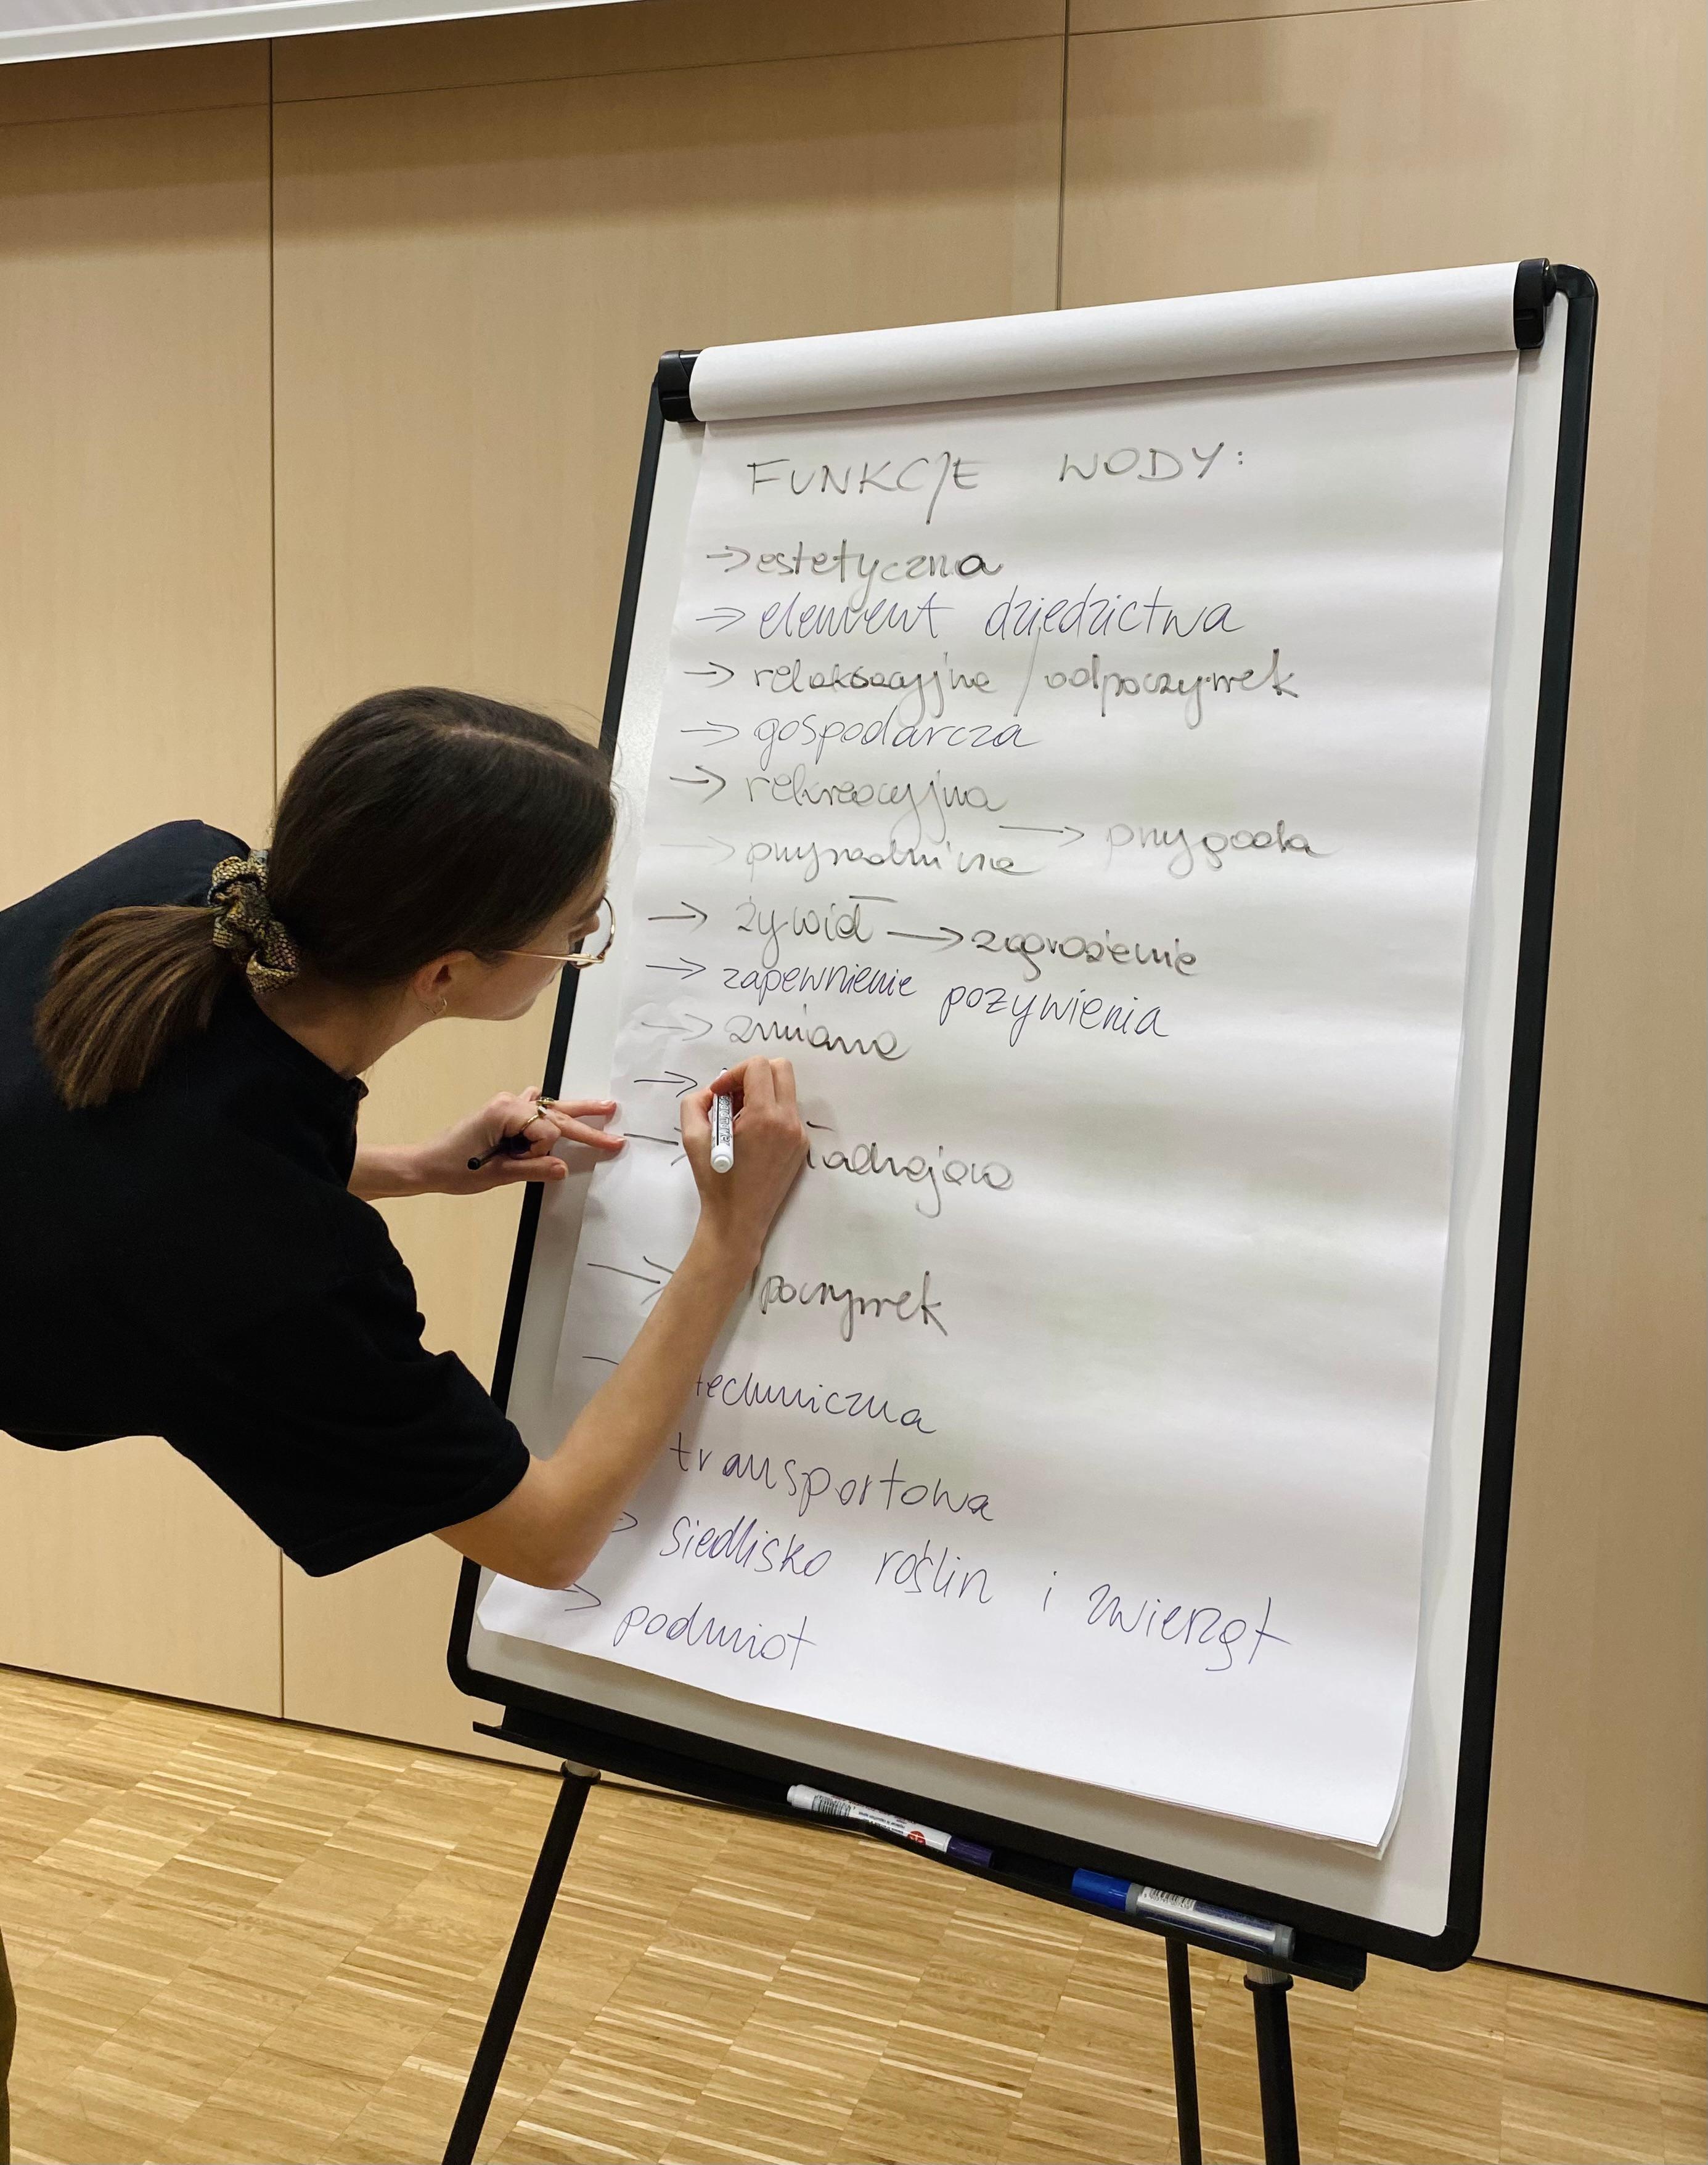 FUNKCJE WODY:
→ estetyczna
→ element dziedzictwa
→ relaksacyjne / odpoczynek
→ gospodarcza
→ rekreacyjna
→ przyrodnicza → przygoda
→ żywioł → zagrożenie
→ zapewnienie pożywienia
→ zmiana
→
→
→ poczynek
techniczna
transportowa
→ siedlisko roślin i zwierząt
→ podmiot